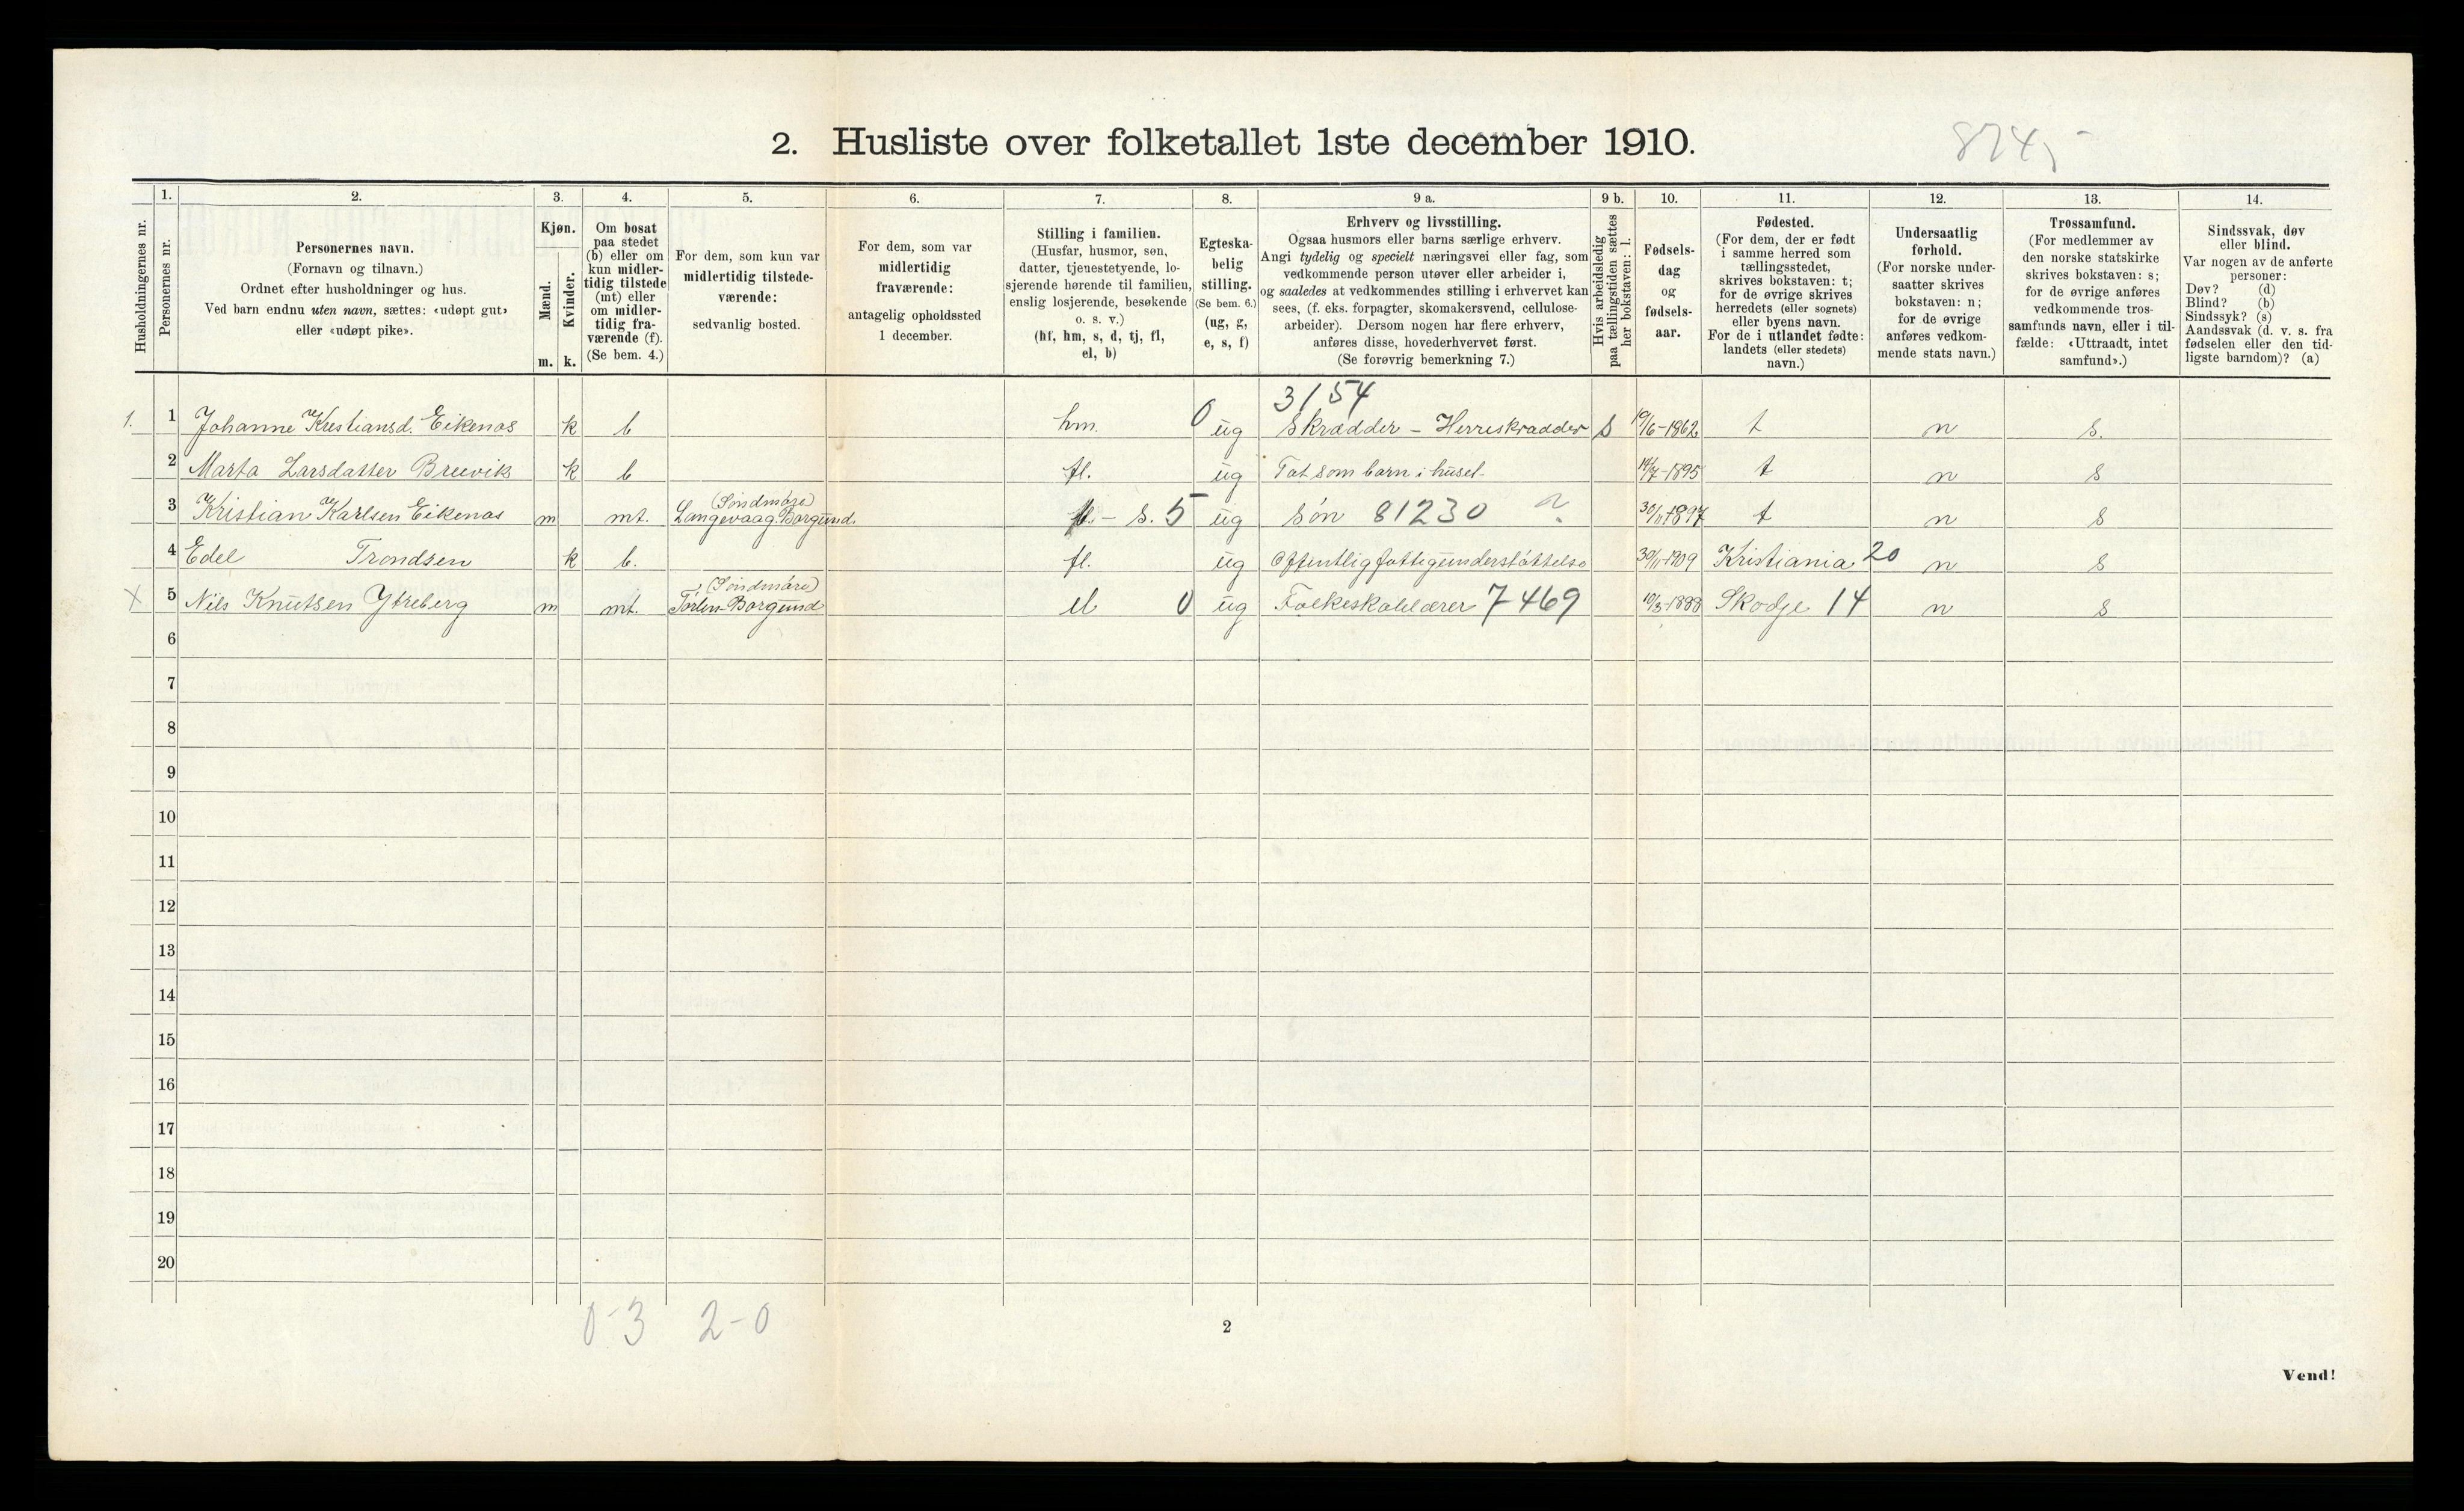 2. Husliste over folketallet 1ste december 1910.
Husholdningernes nr.
1. Personernes nr.
2. Personernes navn.
(Fornavn og tilnavn.)
Ordnet efter husholdninger og hus.
Ved barn endnu uten navn, sættes: «udøpt gut»
eller «udøpt pike».
3. Kjøn.
Mænd. m.
Kvinder. k.
4. Om bosat
paa stedet
(b) eller om
kun midler-
tidig tilstede
(mt) eller
om midler-
tidig fra-
værende (f).
(Se bem. 4.)
5. For dem, som kun var
midlertidig tilstede-
værende:
sedvanlig bosted.
6. For dem, som var
midlertidig
fraværende:
antagelig opholdssted
1 december.
7. Stilling i familien.
(Husfar, husmor, søn,
datter, tjenestetyende, lo-
sjerende hørende til familien,
enslig losjerende, besøkende
o. s. v.)
(hf, hm, s, d, tj, fl,
el, b)
8. Egteska-
belig
stilling.
(Se bem. 6.)
(ug, g,
e, s, f)
9 a. Erhverv og livsstilling.
Ogsaa husmors eller barns særlige erhverv.
Angi tydelig og specielt næringsvei eller fag, som
vedkommende person utøver eller arbeider i,
og saaledes at vedkommendes stilling i erhvervet kan
sees, (f. eks. forpagter, skomakersvend, cellulose-
arbeider). Dersom nogen har flere erhverv,
anføres disse, hovederhvervet først.
(Se forøvrig bemerkning 7.)
9 b. Hvis arbeidsledig
paa tællingstiden sættes
her bokstaven: l.
10. Fødsels-
dag
og
fødsels-
aar.
11. Fødested.
(For dem, der er født
i samme herred som
tællingsstedet,
skrives bokstaven: t;
for de øvrige skrives
herredets (eller sognets)
eller byens navn.
For de i utlandet fødte:
landets (eller stedets)
navn.)
12. Undersaatlig
forhold.
(For norske under-
saatter skrives
bokstaven: n;
for de øvrige
anføres vedkom-
mende stats navn.)
13. Trossamfund.
(For medlemmer av
den norske statskirke
skrives bokstaven: s;
for de øvrige anføres
vedkommende tros-
samfunds navn, eller i til-
fælde: «Uttraadt, intet
samfund».)
14. Sindssvak, døv
eller blind.
Var nogen av de anførte
personer:
Døv? (d)
Blind? (b)
Sindssyk? (s)
Aandssvak (d. v. s. fra
fødselen eller den tid-
ligste barndom)? (a)
3154
1. 1 Johanne Kristiansd. Eikenos k b hm. 0 ug Skrædder - Herreskrædder s 19/6-1862 t n s.
2 Marta Larsdatter Breivik k b fl. ug Tat som barn i huset 14/7-1895 t n s
(Søndmøre)
3 Kristian Karlsen Eikenos m mt. Langevaag Borgund. - s. 5 ug søn 81230 30/11-1897 t n s
4 Edel Trondsen k b. fl. ug Offentlig fattigunderstøttelse 30/11-1909 Kristiania 20 n s
(Søndmøre)
X 5 Nils Knutsen Ytreberg m mt. Borgund el 0 ug Folkeskolelærer 7469 10/3-1888 Skodje 14 n s
6
7
8
9
10
11
12
13
14
15
16
17
18
19
20
0-3 2-0
2
Vend!